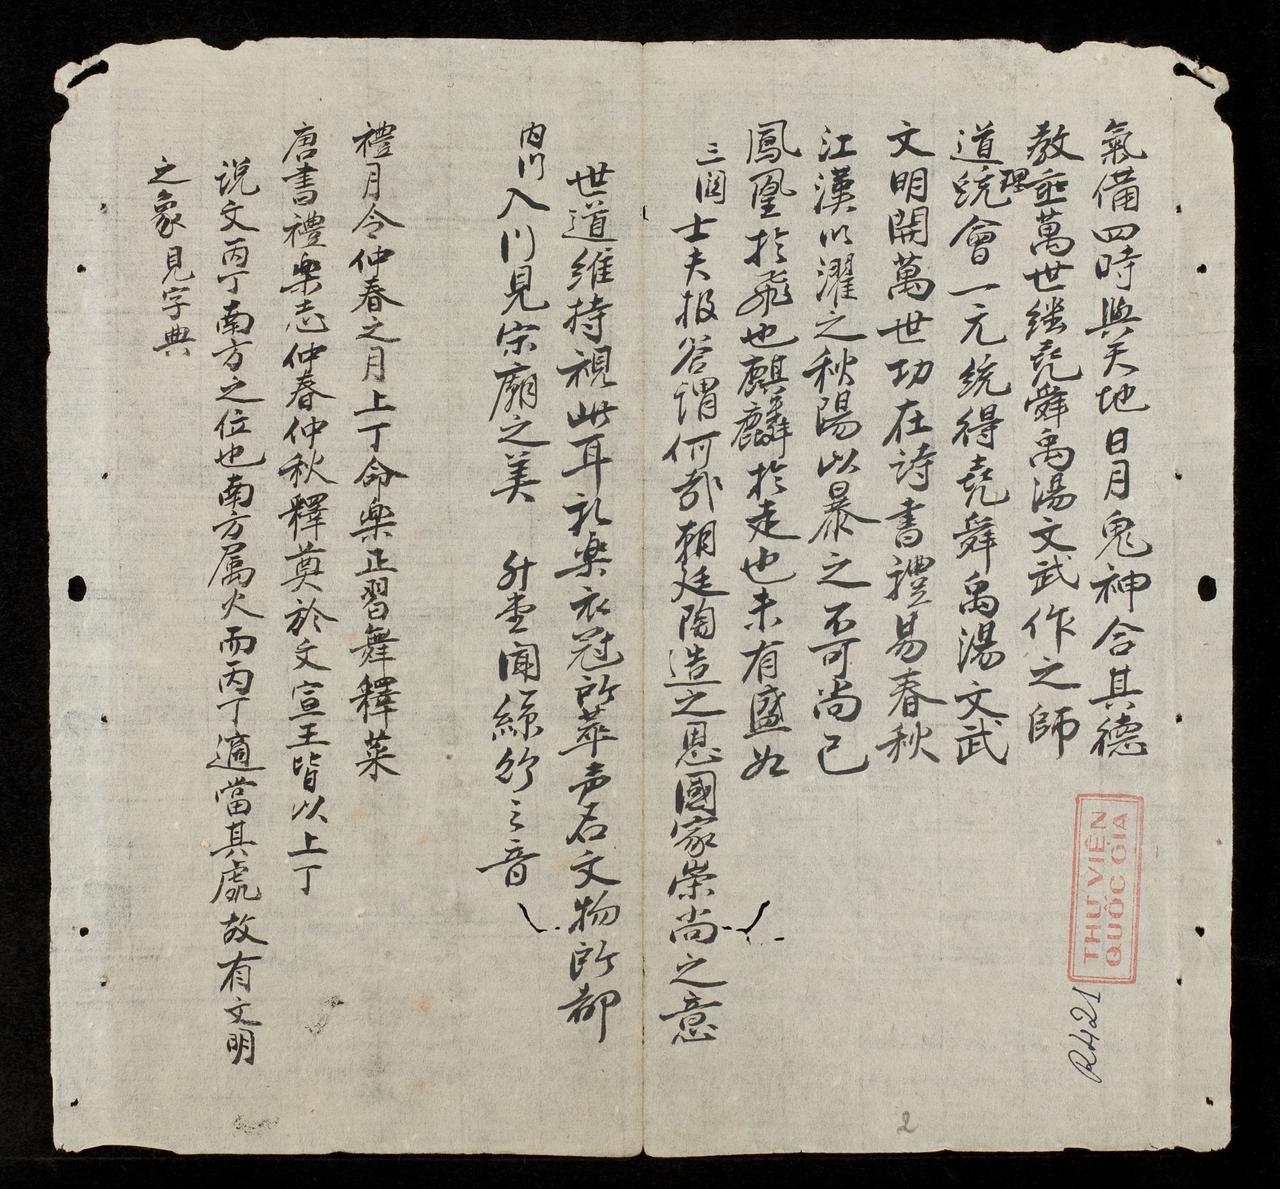 氣備四時與天地日月鬼神合其德
教垂萬世继堯舜禹湯文武作之師
道統會一元統得堯舜禹湯文武
理
文明開萬世功在詩書禮易春秋
江漢以濯之秋陽以暴之不可尚已
鳳凰於飛也麒麟於走也未有盛如
三関 士夫报答謂何哉朝廷陶造之恩國家崇尚之意
世道維持視此耳礼楽衣冠所萃声名文物所都
内門 入门見宗廟之美 升堂闻絲竹之音
禮月令仲春之月上丁命楽正習舞釋菜
唐書禮楽志仲春仲秋釋奠於文宣王皆以上丁
说文丙丁南方之位也南方属火而丙丁適當其處故有文明
之象見字典
THƯ VIỆN
QUỐC GIA
R421
2